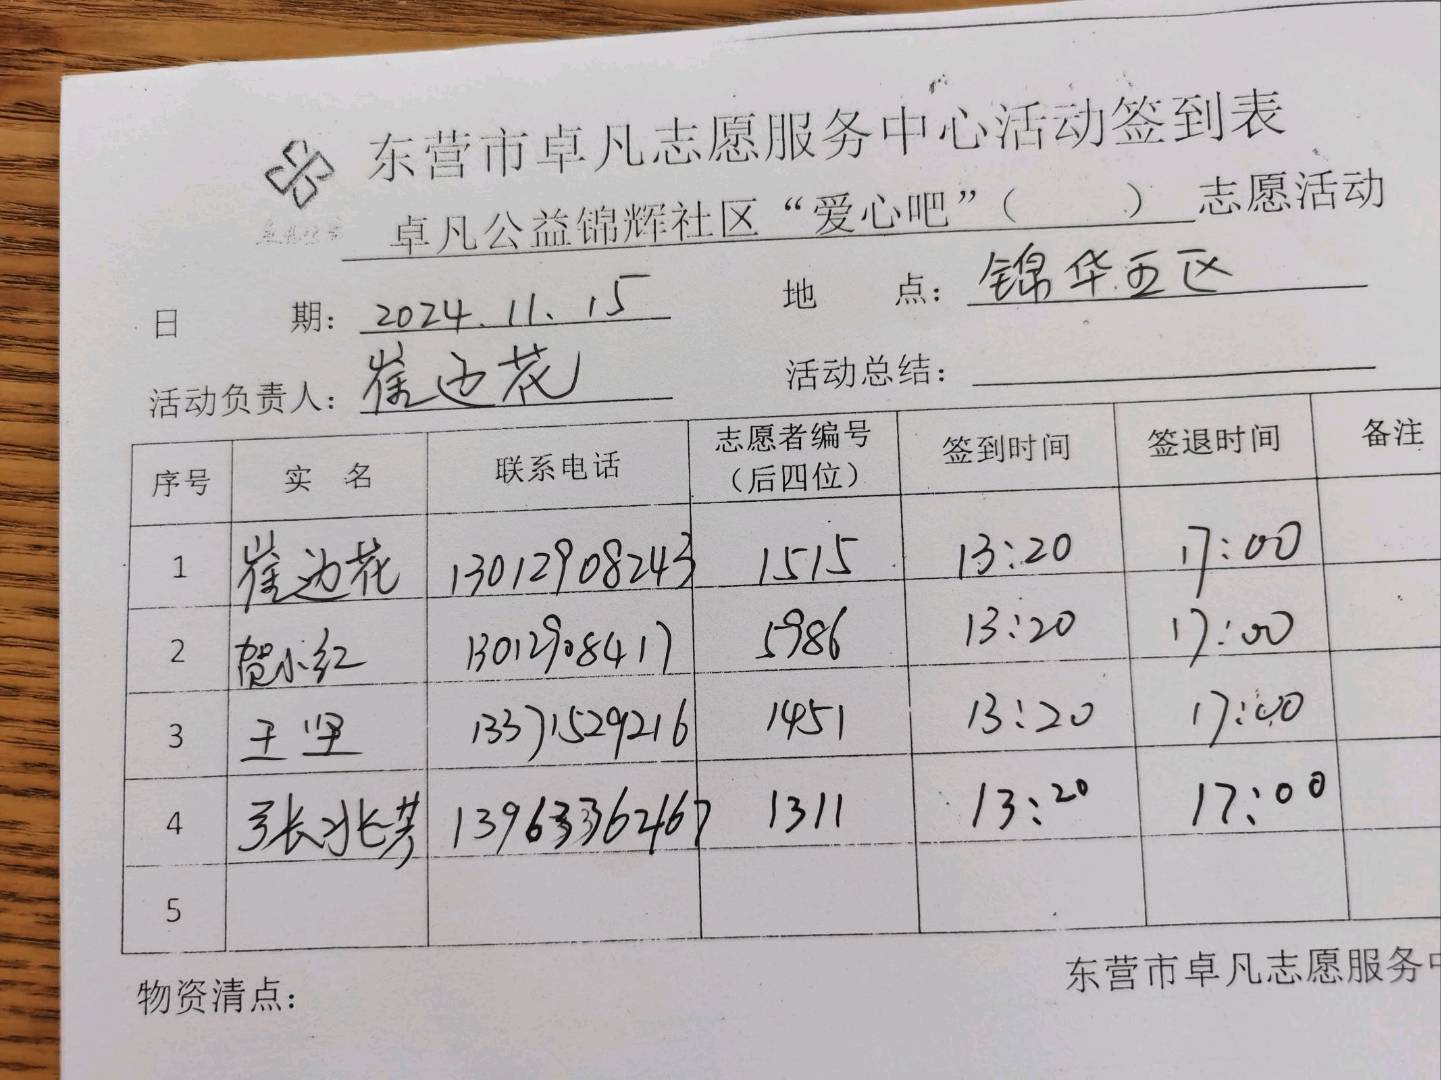 东营市卓凡志愿服务中心活动签到表
卓凡公益锦辉社区“爱心吧”（ ）志愿活动
日 期：2024.11.15 地 点：锦华五区
活动负责人：崔边花 活动总结：
序号 实 名 联系电话 志愿者编号（后四位） 签到时间 签退时间 备注
1 崔边花 13012908243 1515 13:20 17:00
2 贺小红 13012908417 5986 13:20 17:00
3 王坚 13371529216 1451 13:20 17:00
4 张兆芳 13963362467 1311 13:20 17:00
5
物资清点： 东营市卓凡志愿服务中